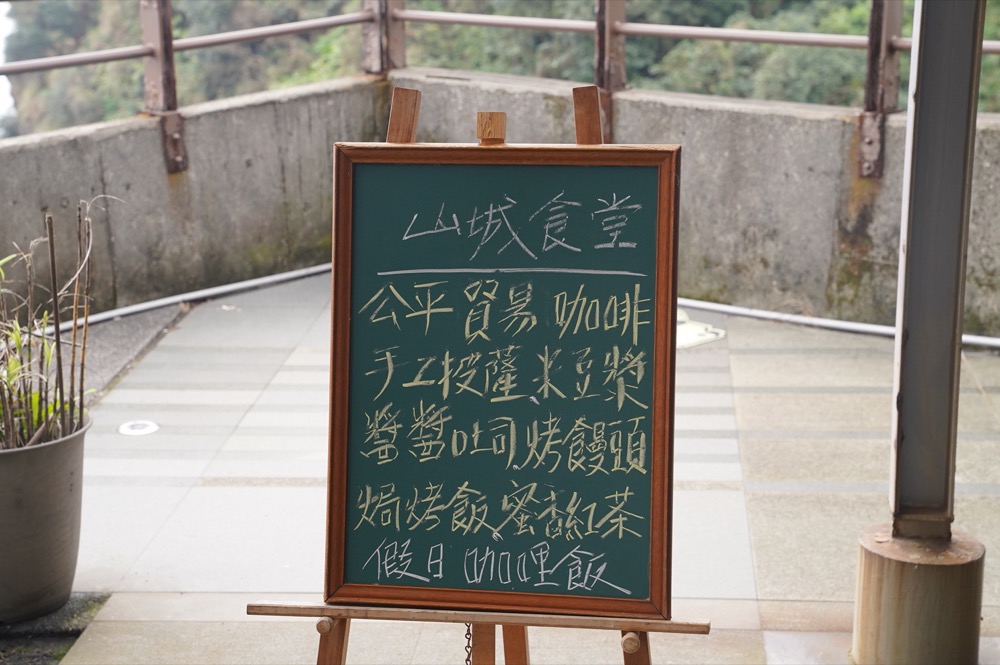 山城食堂
公平貿易 咖啡
手工披薩 米豆漿
醬醬吐司 烤饅頭
焗烤飯 蜜香紅茶
假日 咖哩飯